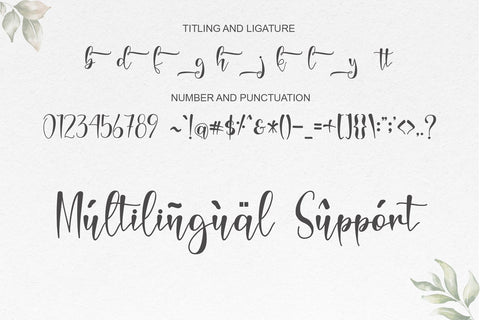 TITLING AND LIGATURE
b d f _g h _j k l _y tt
NUMBER AND PUNCTUATION
0123456789 ~`!@#$%^&*()-_=+[]{}\:";'<>,.?
Múltiliñgùäl Sûppórt